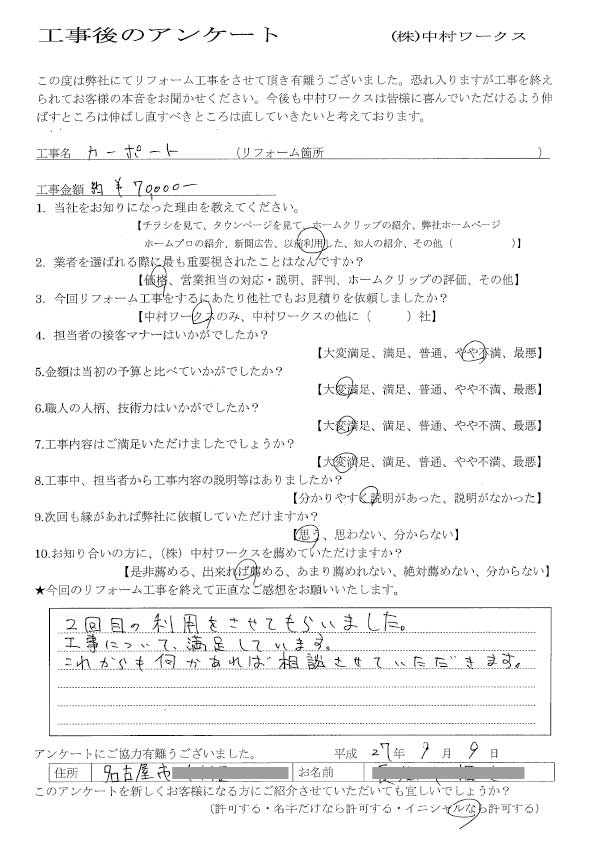 工事後のアンケート (株)中村ワークス
この度は弊社にてリフォーム工事をさせて頂き有難うございました。恐れ入りますが工事を終え
られてお客様の本音をお聞かせください。今後も中村ワークスは皆様に喜んでいただけるよう伸
ばすところは伸ばし直すべきところは直していきたいと考えております。
工事名 カーポート (リフォーム箇所 )
工事金額 約 ¥70,000ー
1. 当社をお知りになった理由を教えてください。
【チラシを見て、タウンページを見て、ホームクリップの紹介、弊社ホームページ
ホームプロの紹介、新聞広告、以前利用した、知人の紹介、その他 ( )】
2. 業者を選ばれる際に最も重要視されたことはなんですか?
【価格、営業担当の対応・説明、評判、ホームクリップの評価、その他】
3. 今回リフォーム工事をするにあたり他社でもお見積りを依頼しましたか?
【中村ワークスのみ、中村ワークスの他に ( ) 社】
4. 担当者の接客マナーはいかがでしたか?
【大変満足、満足、普通、やや不満、最悪】
5.金額は当初の予算と比べていかがでしたか?
【大変満足、満足、普通、やや不満、最悪】
6.職人の人柄、技術力はいかがでしたか?
【大変満足、満足、普通、やや不満、最悪】
7.工事内容はご満足いただけましたでしょうか?
【大変満足、満足、普通、やや不満、最悪】
8.工事中、担当者から工事内容の説明等はありましたか?
【分かりやすく説明があった、説明がなかった】
9.次回も縁があれば弊社に依頼していただけますか?
【思う、思わない、分からない】
10.お知り合いの方に、(株) 中村ワークスを薦めていただけますか?
【是非薦める、出来れば薦める、あまり薦めれない、絶対薦めない、分からない】
★今回のリフォーム工事を終えて正直なご感想をお願いいたします。
2回目の利用をさせてもらいました。
工事について、満足しています。
これからも何かあれば相談させていただきます。
アンケートにご協力有難うございました。 平成 27年 9月 9日
住所 名古屋市 お名前
このアンケートを新しくお客様になる方にご紹介させていただいても宜しいでしょうか?
(許可する・名字だけなら許可する・イニシャルなら許可する)